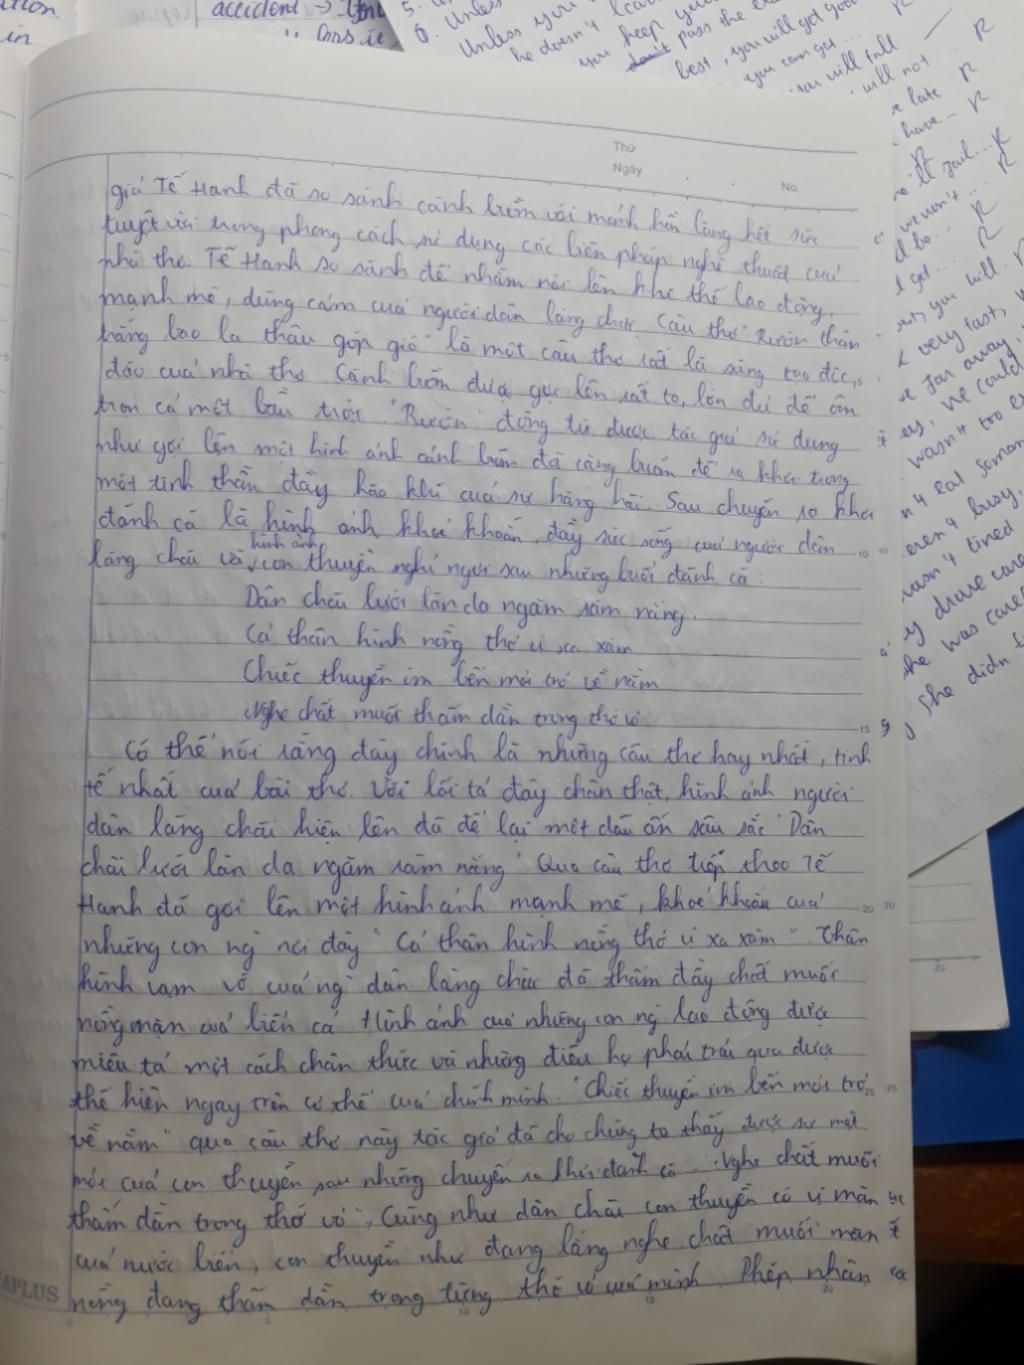 ation
in
accident →
5.
6. Unless
Unless you
he doesn't
you keep you
don't pass the
best, you will get good
you can get...
you will fall
will not...
late R
have... R
Thứ
Ngày
No.
giả Tế Hanh đã so sánh cánh buồm với mảnh hồn làng hết sức
tuyệt vời trong phong cách sử dụng các biện pháp nghệ thuật của
nhà thơ. Tế Hanh so sánh để nhằm nói lên khí thế lao động,
mạnh mẽ, dũng cảm của người dân làng chài. Câu thơ "Rướn thân
trắng bao la thâu góp gió" là một câu thơ rất là sáng tạo độc
đáo của nhà thơ. Cánh buồm được gục lên rất to, lớn đủ để ôm
trọn cả một bầu trời. "Rướn" động từ được tác giả sử dụng
như gợi lên một hình ảnh cánh buồm đã căng buồm để ra khơi trong
một tinh thần đầy hào khí của sự hăng hái. Sau chuyến ra khơi
đánh cá là hình ảnh khoẻ khoắn, đầy sức sống của người dân
làng chài và hình ảnh con thuyền nghỉ ngơi sau những buổi đánh cá:
Dân chài lưới làn da ngăm rám nắng.
Cả thân hình nồng thở vị xa xăm
Chiếc thuyền im bến mỏi trở về nằm
Nghe chất muối thấm dần trong thớ vỏ.
Có thể nói rằng đây chính là những câu thơ hay nhất, tinh
tế nhất của bài thơ. Với lối tả đầy chân thật, hình ảnh người
dân làng chài hiện lên đã để lại một dấu ấn sâu sắc "Dân
chài lưới làn da ngăm rám nắng" Qua câu thơ tiếp theo Tế
Hanh đã gợi lên một hình ảnh mạnh mẽ, khoẻ khoắn của
những con ng` nơi đây "Cả thân hình nồng thở vị xa xăm". Thân
hình vạm vỡ của ng` dân làng chài đã thấm đẫy chất muối
nồng mặn của biển cả. Hình ảnh của những con ng` lao động được
miêu tả một cách chân thực và những điều họ phải trải qua được
thể hiện ngay trên cơ thể của chính mình. "Chiếc thuyền im bến mỏi trở
về nằm" qua câu thơ này tác giả đã cho chúng ta thấy được sự mệt
mỏi của con thuyền sau những chuyến ra khơi đánh cá. "Nghe chất muối
thấm dần trong thớ vỏ", Cũng như dân chài con thuyền có vị mặn
của nước biển, con thuyền như đang lắng nghe chất muối mặn
nồng đang thấm dần trong từng thớ vỏ của mình. Phép nhân
APLUS
we won't...
very fast,
far away,
he could
wasn't too
eat
busy,
wasn't tired
drove
he was
She didn't